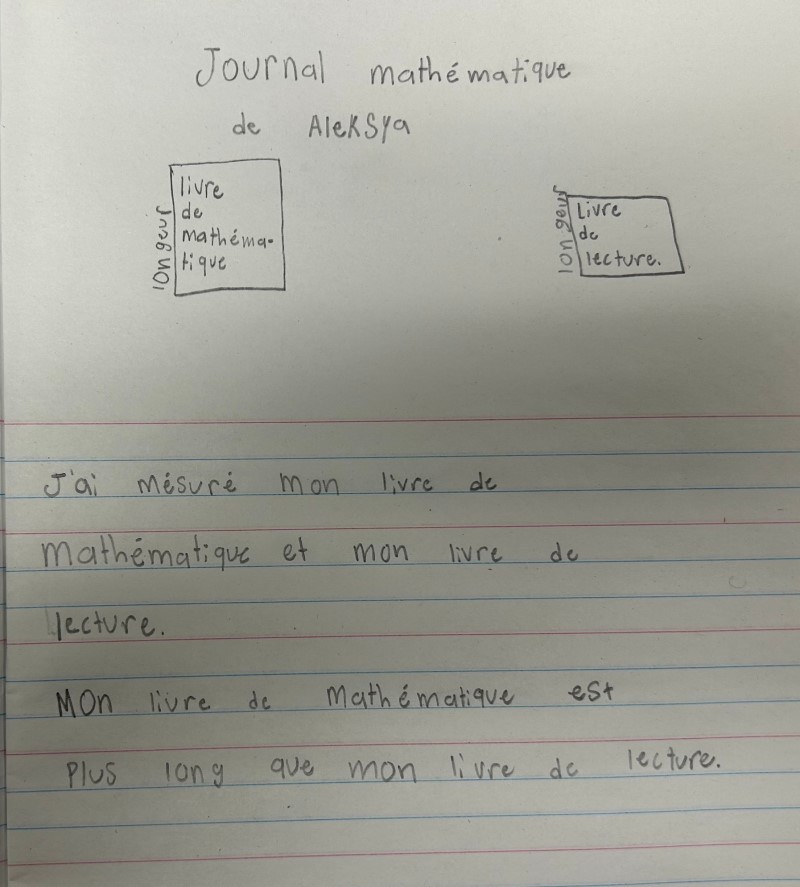 Journal mathématique
de AleKSya
longeur
livre
de
mathéma-
tique
longeur
Livre
de
lecture.
J'ai mésuré mon livre de
mathématique et mon livre de
lecture.
MOn livre de mathématique est
Plus long que mon livre de lecture.